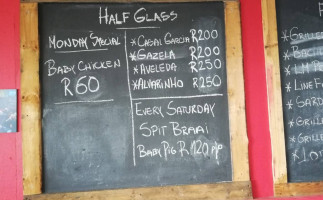 Half Glass
Monday Special
Baby Chicken
R60
*Casal Garcia R200
*Gazela R200
*Aveleda R250
*Alvarinho R250
Every Saturday
Spit Braai
Baby Pig R120
*Grille
*Line F
*Gard
*Grille
*Grille